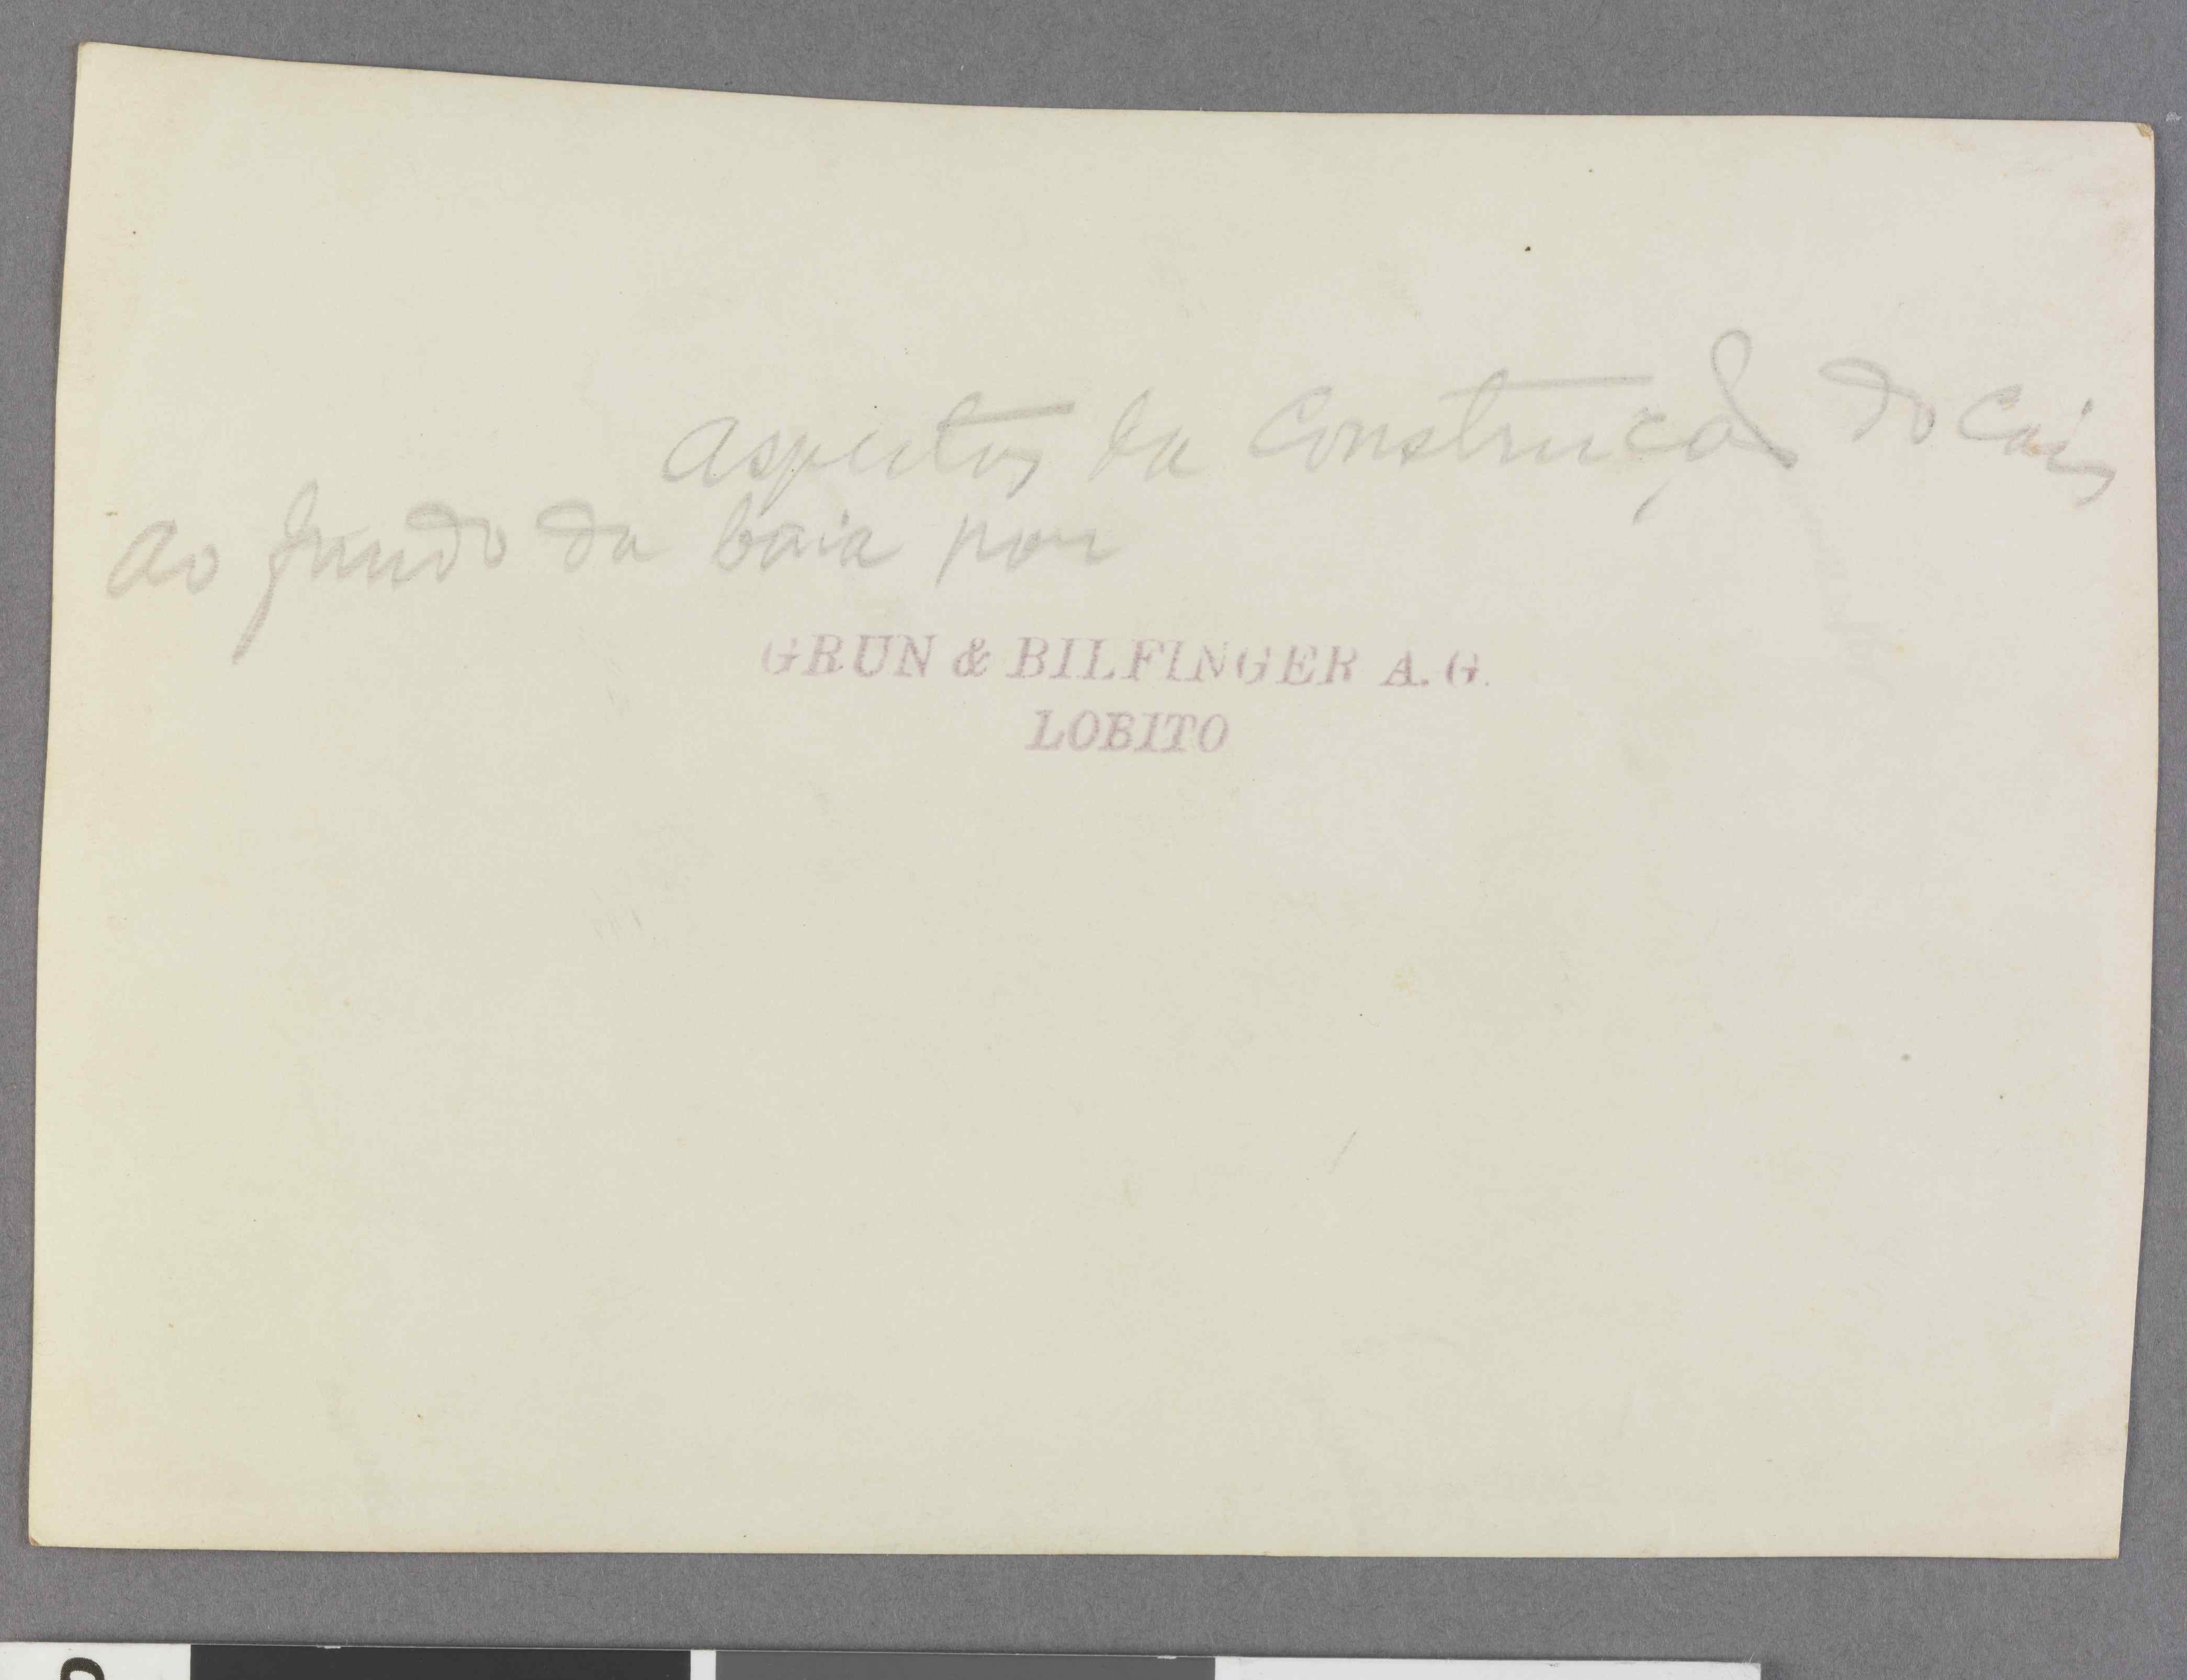 Aspectos da Construção do Cais
ao fundo da baia por
GRÜN & BILFINGER A. G.
LOBITO